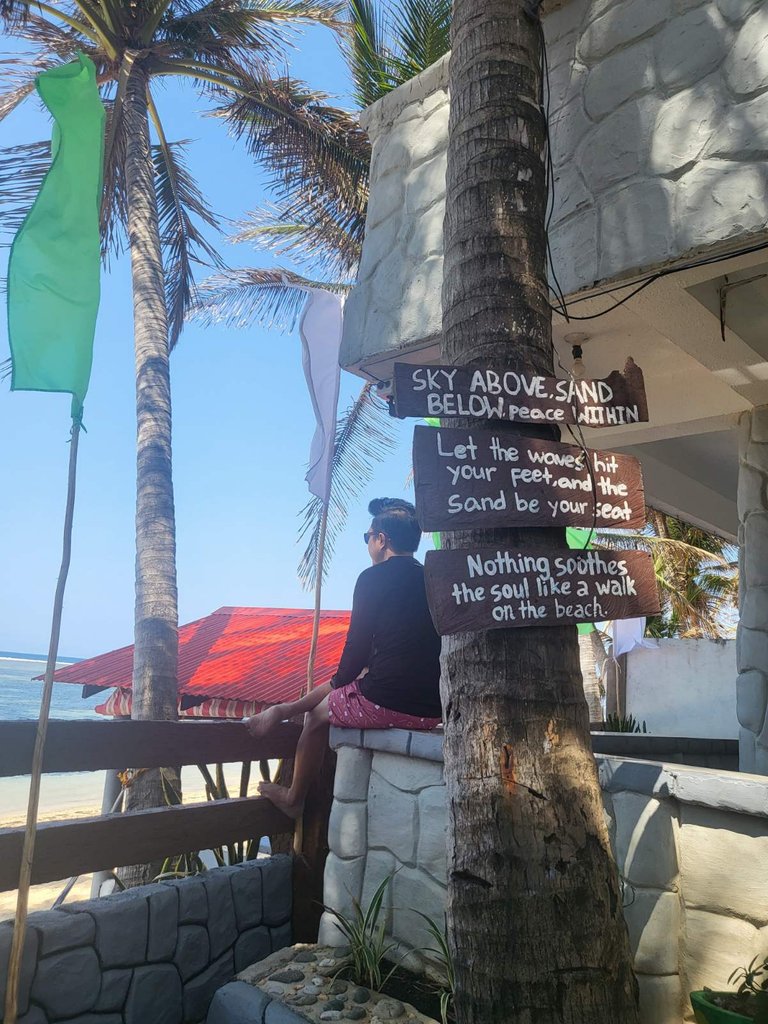 SKY ABOVE, SAND
BELOW, peace WIIHIN
Let the waves hit
your feet, and the
sand be your seat
Nothing soothes
the soul like a walk
on the beach.